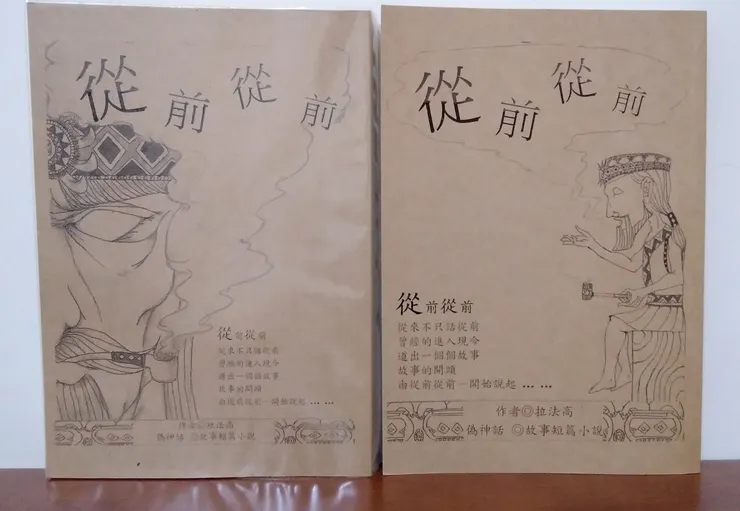 從前從前
從前從前
從來不只話從前
曾經的進入現今
道出一個個故事
故事的開頭
由從前從前一開始說起 … …
作者◎拉法高
偽神話 ◎故事短篇小說
從前從前
從前從前
從來不只話從前
曾經的進入現今
道出一個個故事
故事的開頭
由從前從前一開始說起 … …
作者◎拉法高
偽神話 ◎故事短篇小說